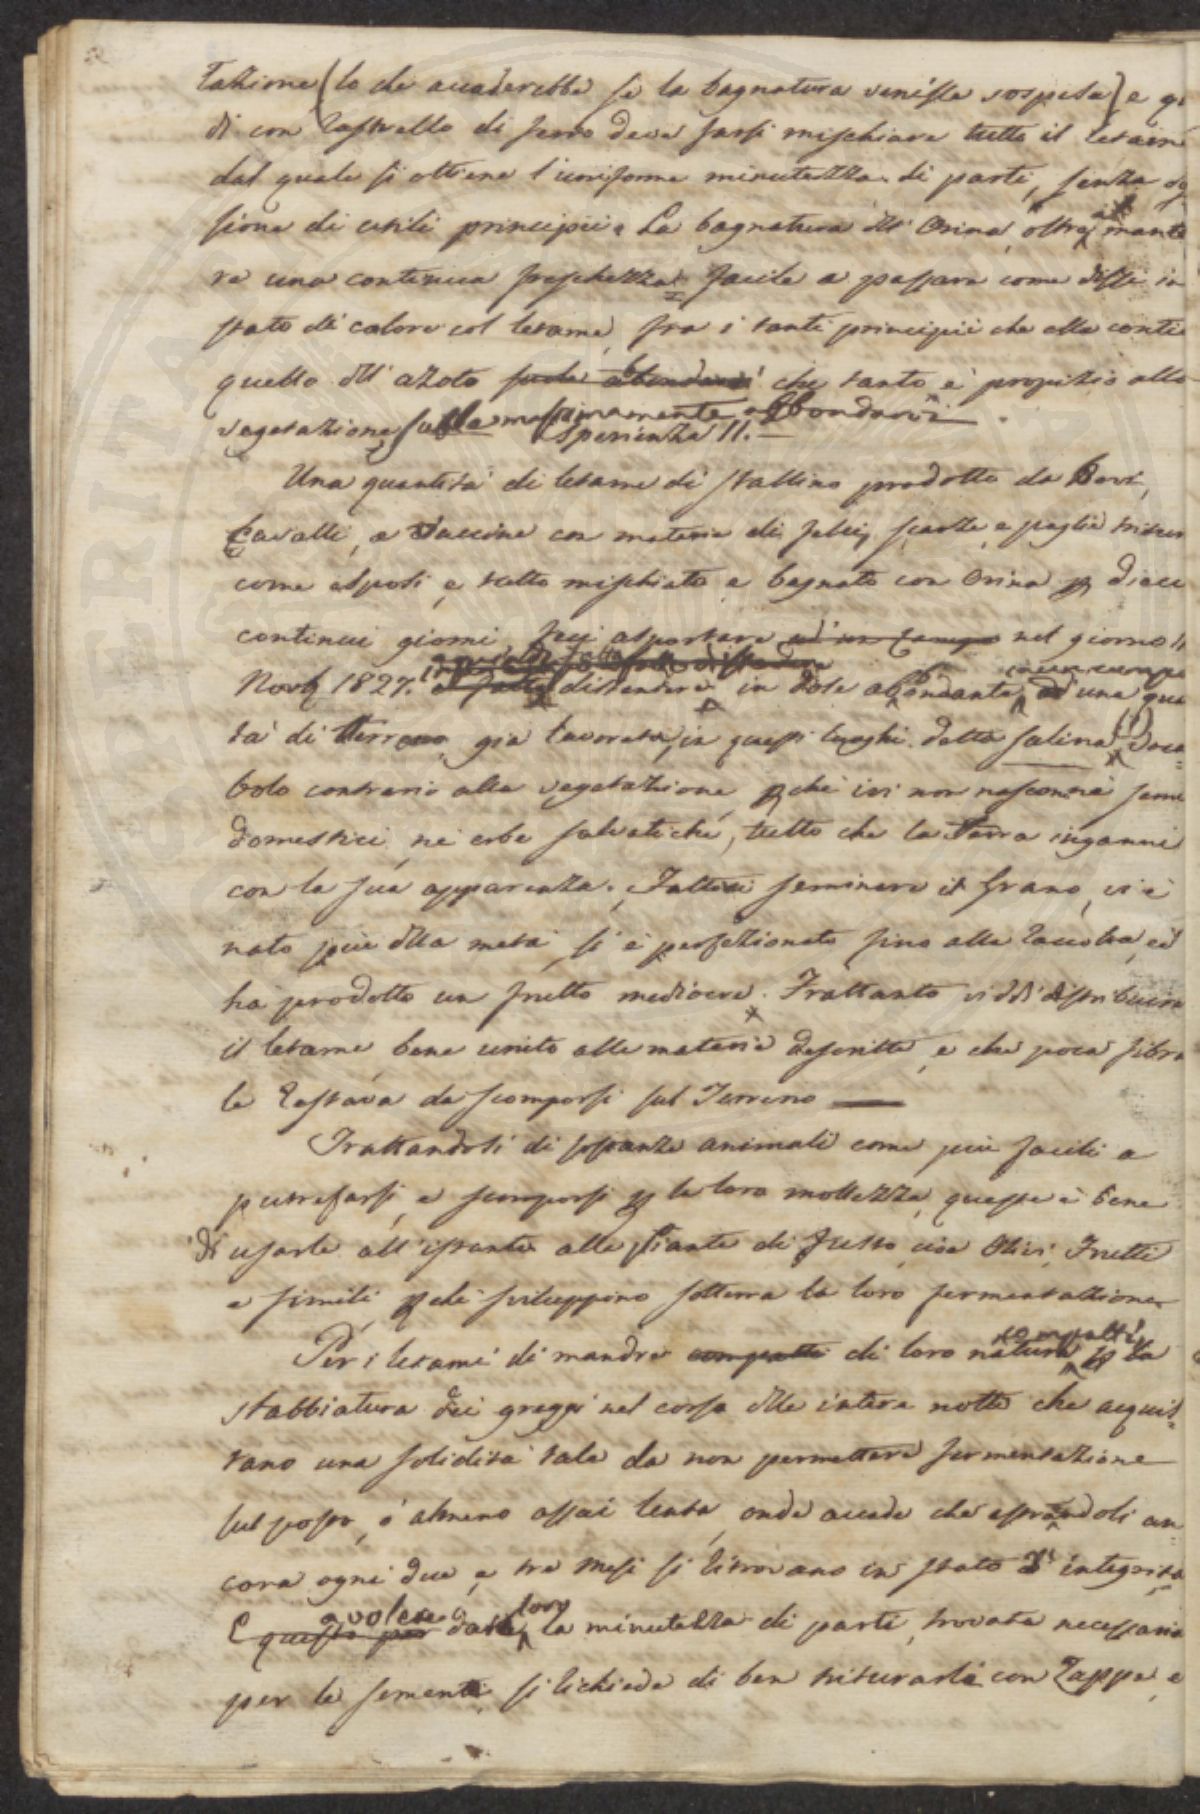 tazione (lo che accaderebbe se la bagnatura venisse sospesa) e
di con rastrello di ferro deve farsi mischiare tutto il letame
dal quale si ottiene l'uniforme minutezza di parti, senza
sione di utili principii. La bagnatura dll' Orina, oltre a mante
re una continua freschezza facile a passare come dissi in
stato di calore col letame, fra i tanti principii che ella conti
quello dll' azoto suole abbondarvi che tanto è propizio alla
vegetazione, suole massimamente abbondarvi.
Sperienza II.—
Una quantità di letame di stallino prodotto da Bovi,
Cavalli, e Vaccine con materie di felci, scarze, e paglie tritur
come esposi, e tutto mischiato e bagnato con Orina p dieci
continui giorni, feci asportare ad un Campo nel giorno 11
Novb 1827. e fatto distendere in dose abbondante in un campo ad una qua
tà di Terreno già lavorata, in questi luoghi detta salina (1) voca=
bolo contrario alla vegetazione, pchè ivi non nasconvi semi
domestici, nè erbe salvatiche, tutto che la Terra inganni
con la sua apparenza. Fattoci seminare il Grano, vi è
nato più dlla metà, si è perfezionato fino alla raccolta, ed
ha prodotto un frutto mediocre. Frattanto viddi distribuire
il letame bene unito alle materie descritte, e che poca fibra
le restava da scomporsi sul Terreno —
Trattandosi di sostanze animali come più facili a
putrefarsi, e scomporsi p la loro mollezza, queste è bene
di usarle all'istante alle Piante di fusto, cioè Olivi, Frutti
e simili, pchè sviluppino sotterra la loro fermentazione
Per i letami di mandre compatti di loro natura compatti p la
stabbiatura dei greggi nel corso dlle intere notti che acquis=
tano una solidità tale da non permettere fermentazione
sul posto, o almeno assai lenta, onde accade che estraendoli an
cora ogni due, e tre mesi si ritrovano in stato d'integrità
E questo per a volere dare loro la minutezza di parti, trovata necessaria
per le sementi, si richiede di ben triturarli con Zappe, e